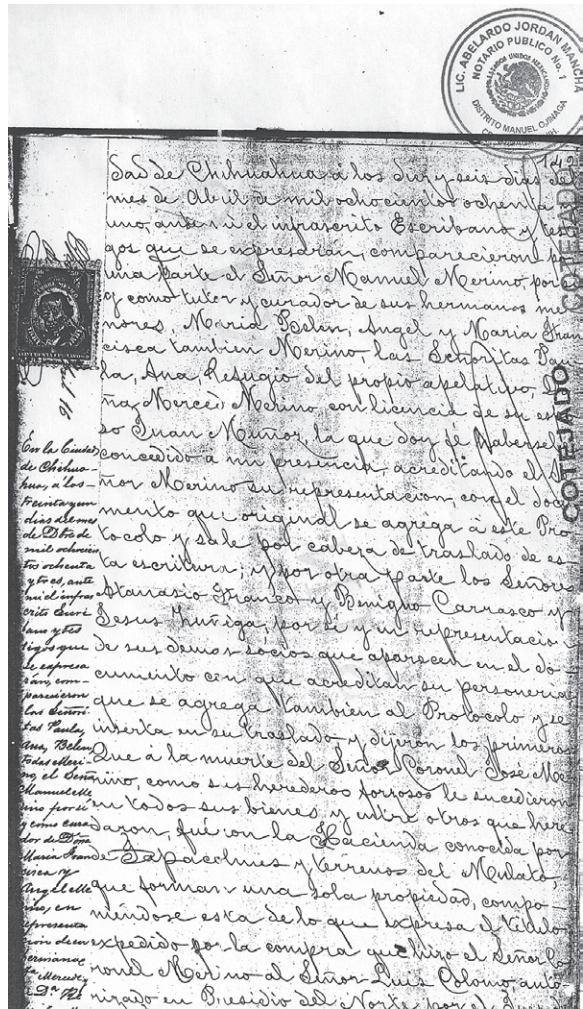 LIC. ABELARDO JORDAN MANCHA
NOTARIO PUBLICO No. 1
ESTADOS UNIDOS MEXICANOS
DISTRITO MANUEL OJINAGA
142
COTEJADO
COTEJADO
dad de Chihuahua á los diez y seis dias del
mes de Abril de mil ochocientos ochenta
uno, ante mi el infrascrito Escribano y tes
gos que se expresarán, comparecieron po
una parte el Señor Manuel Merino, por
y como tutor y curador de sus hermanos me
nores, Maria Belén, Angel y Maria Fran
cisca tambien Merino, las Señoritas Pau
la, Ana, Refugio del propio apelativo,
ña Merced Merino, con licencia de su espo
so Juan Muñoz, la que doy fé haberse
concedido á mi presencia, acreditando el Se
ñor Merino su representacion, con el docu
mento que original se agrega á este Pro
tocolo y sale por cabeza de traslado de es
ta escritura; y por otra parte los Señores
Atanasio Franco y Benigno Carrasco y
Jesus Zuñiga, por si y en representacio
de sus demas socios que aparecen en el do
cumento con que acreditan su personeria
que se agrega tambien al Protocolo y se
inserta en su traslado y dijeron los primeros
Que á la muerte del Señor Coronel José Me
rino, como sus herederos forzosos le sucedieron
en todos sus bienes, y entre otros que here
daron, fueron la Hacienda conocida por
de Tapacolmes y terrenos del Mulato,
que forman una sola propiedad, compo-
niéndose esta de lo que expresa el título
expedido por la compra que hizo el Señor Co
ronel Merino al Señor Luis Colomo, auto-
rizado en Presidio del Norte por el
16
En la Ciudad
de Chihua-
hua, á los
treinta y un
dias del mes
de Dbre de
mil ochocien
tos ochenta
y tres, ante
mi el infras
crito Escri
bano y tes
tigos que
se expresa
rán, com-
parecieron
las Señori
tas Paula,
Ana, Belen
todas Meri
no, el Señor
Manuel Me
rino por si
y como cura
dor de Doña
Maria Fran
cisca y
Angel Me
rino, en
representa
cion de su
hermana
Da Merced y
Da Re